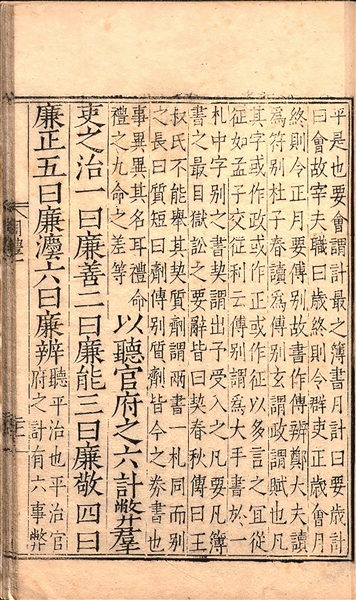 平是也要會謂計最之簿書月計曰要歲計
曰會故宰夫職曰歲終則令群吏正歲會月
終則令正月要傅別故書作傅辨鄭大夫讀
為符別杜子春讀為傅別玄謂政謂賦也凡
其字或作政或作正或作征以多言之宜從
征如孟子交征利云傅別謂為大手書於一
札中字別之書契謂出予受入之凡要凡簿
書之最目獄訟之要辭皆曰契春秋傳曰王
叔氏不能舉其契質劑謂兩書一札同而別
之長曰質短曰劑傅別質劑皆今之券書也
事異異其名耳禮命
禮之九命之差等
以聽官府之六計弊羣
吏之治一曰廉善二曰廉能三曰廉敬四曰
廉正五曰廉灋六曰廉辨
聽平治也平治官
府之計有六事弊